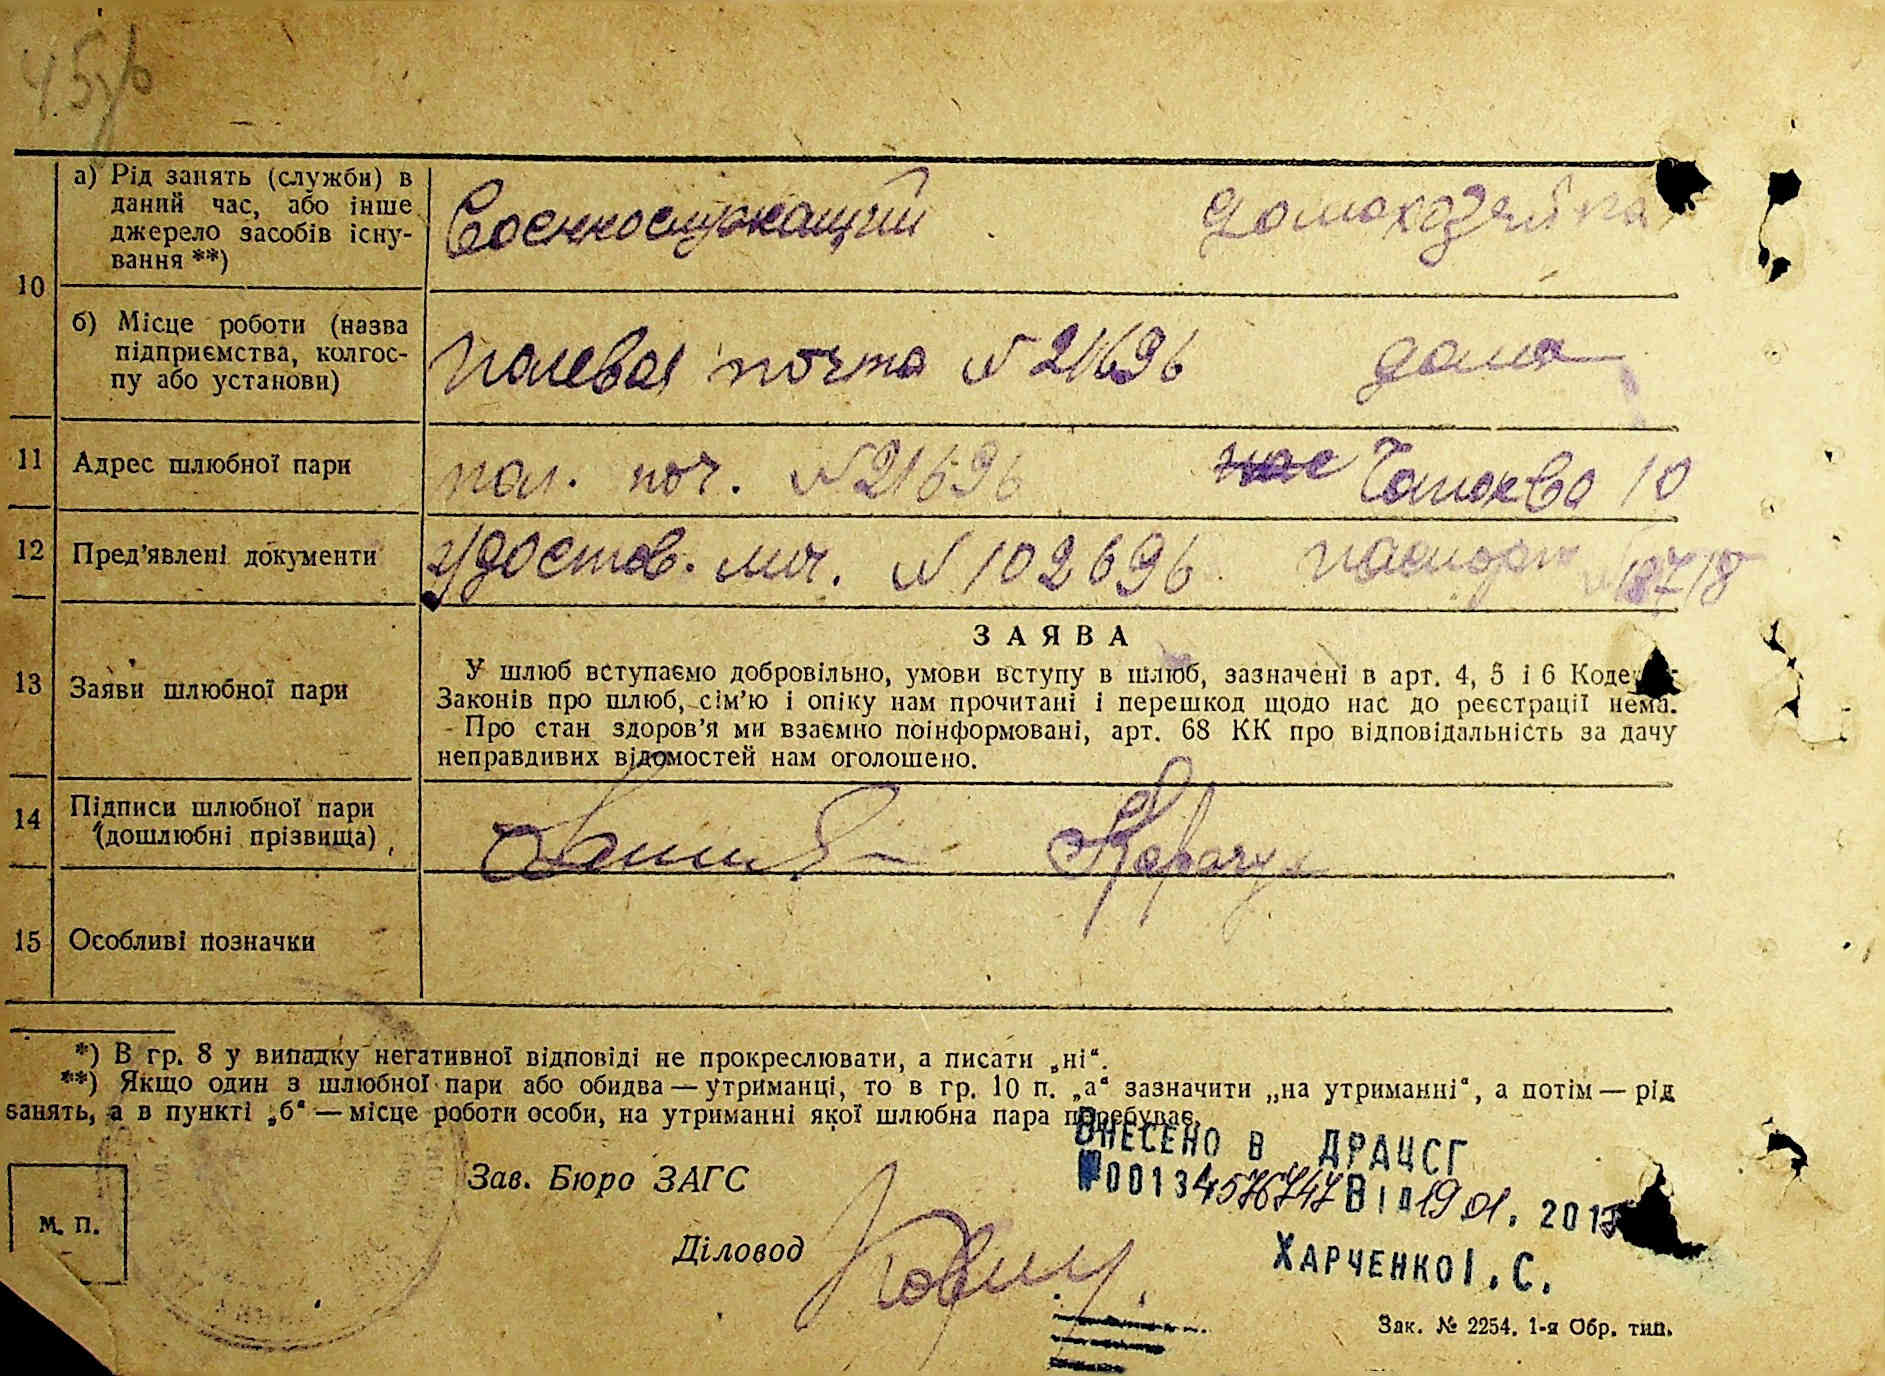 а) Рід занять (служби) в
даний час, або інше
джерело засобів існу-
вання **)
Военнослужащий домохозяйка
10
б) Місце роботи (назва
підприємства, колгос-
пу або установи)
полевая почта № 21696 дома
11 Адрес шлюбної пари
пол. поч. № 21696 10
12 Пред'явлені документи
удостов. лич. № 102696 паспорт
ЗАЯВА
13 Заяви шлюбної пари
У шлюб вступаємо добровільно, умови вступу в шлюб, зазначені в арт. 4, 5 і 6 Коде
Законів про шлюб, сім'ю і опіку нам прочитані і перешкод щодо нас до реєстрації нема.
Про стан здоров'я ми взаємно поінформовані, арт. 68 КК про відповідальність за дачу
неправдивих відомостей нам оголошено.
14 Підписи шлюбної пари
(дошлюбні прізвища)
15 Особливі позначки
*) В гр. 8 у випадку негативної відповіді не прокреслювати, а писати „ні“.
**) Якщо один з шлюбної пари або обидва — утриманці, то в гр. 10 п. „а“ зазначити „на утриманні“, а потім — рід
занять, а в пункті „б“ — місце роботи особи, на утриманні якої шлюбна пара перебуває.
ВНЕСЕНО В ДРАЦСГ
Зав. Бюро ЗАГС
№00134576747 ВІД 19.01.201
М. П.
Діловод
ХАРЧЕНКО І. С.
Зак. № 2254. 1-я Обр. тип.